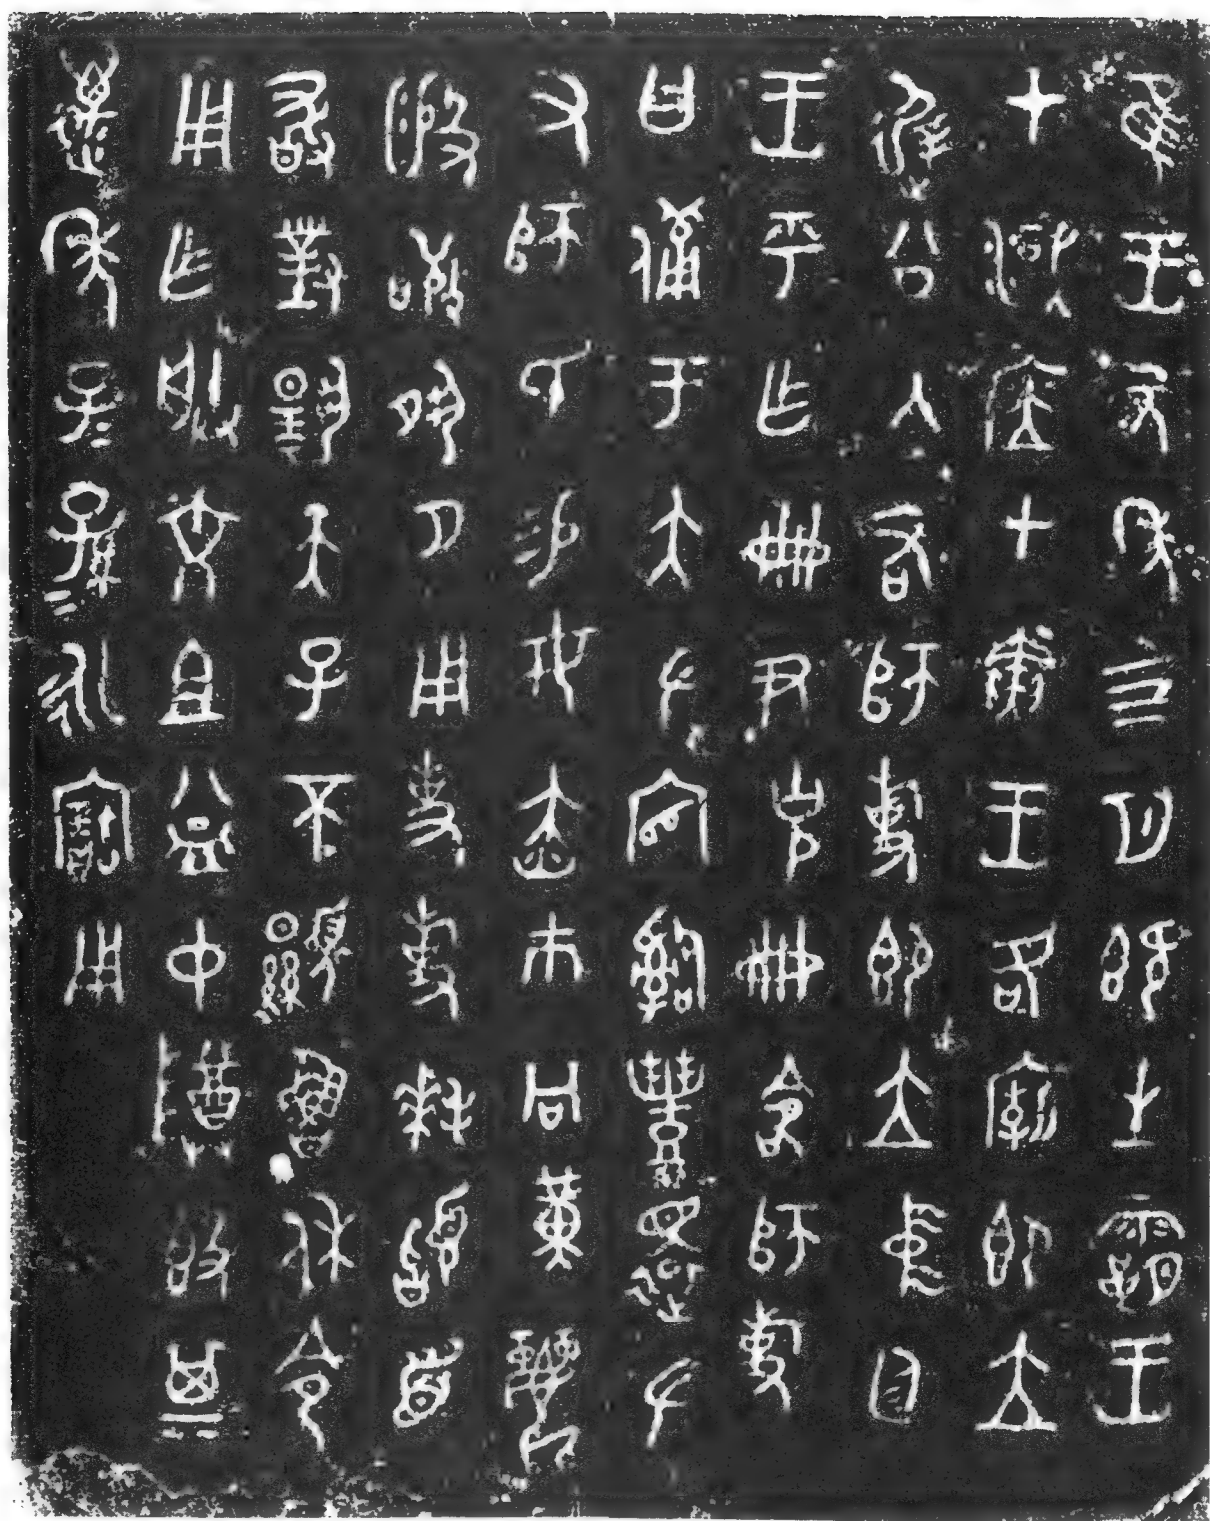 隹王元年四月既生霸王
才淢应甲寅王各廟即立
遟公入右師旋即立中廷
王乎乍冊尹克冊命師旋
曰備于大左官𤔲豐還左
又師氏易女赤巿冋黃麗般
敬夙夕用事旋拜𩒨首
敢對揚天子不顯魯休命
用乍朕文且益中尊𣪘
其萬年子子孫孫永寶用